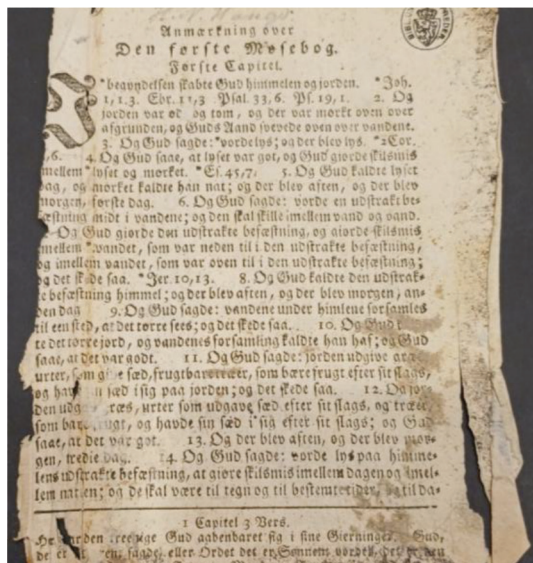 Anmærkning over
Den første Mosebog.
Første Capitel.
I *begyndelsen skabte Gud himmelen og jorden. *Joh.
1, 1.3. Ebr. 11,3 Psal. 33, 6. Ps. 19, 1. 2. Og
jorden var od og tom, og der var mørkt oven over
afgrunden, og Guds Aand svevede oven over vandene.
3. Og Gud sagde: *vorde lys; og der blev lys. *2 Cor.
,6. 4. Og Gud saae, at lyset var got, og Gud giorde skilsmis
imellem *lyset og mørket. *Es. 45,7. 5. Og Gud kaldte lyset
dag, og mørket kaldte han nat; og der blev aften, og der blev
morgen, første dag. 6. Og Gud sagde: vorde en udstrakt be-
æstning midt i vandene; og den skal skille imellem vand og vand.
Og Gud giorde den udstrakte befæstning, og giorde skilsmis
mellem *vandet, som var neden til i den udstrakte befæstning,
og imellem vandet, som var oven til i den udstrakte befæstning;
og det skede saa. *Jer. 10, 13. 8. Og Gud kaldte den udstrak-
te befæstning himmel; og der blev aften, og der blev morgen, an-
den dag 9. Og Gud sagde: vandene under himlene forsamles
til een sted, at det tørre sees; og det skede saa. 10. Og Gud
te det tørre jord, og vandenes forsamling kaldte han haf; og Gud
saae, at det var godt. 11. Og Gud sagde: jorden udgive
urter, som give sæd, frugtbare træer, som bære frugt efter sit slags,
og sæd i sig paa jorden; og det skede saa. 12. Og jor-
den udg græs, urter som udgave sæd efter sit slags, og træer,
som bare frugt, og havde sin sæd i sig efter sit slags; og Gud
saae, at det var got. 13. Og der blev aften, og der blev mor-
gen, tredie dag. 14. Og Gud sagde: vorde lys paa himme-
lens udstrakte befæstning, at giøre skilsmis imellem dagen og imel-
lem natten; og de skal være til tegn og til bestemte tider, og til da-
1 Capitel 3 Vers.
den treenige Gud aabenbaret sig i sine Gierninger. Gud,
sagde; eller Ordet det er Sønnen